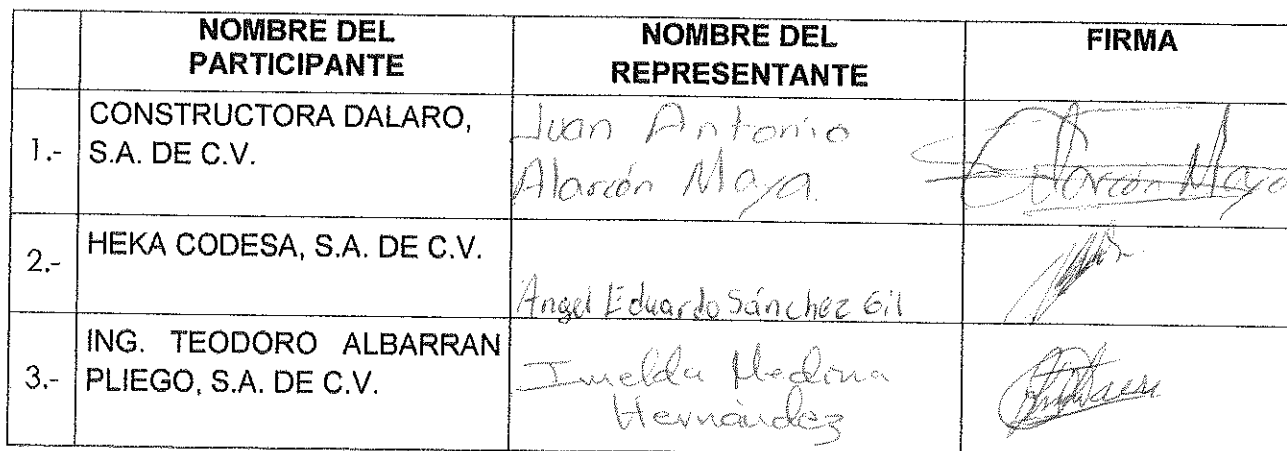 NOMBRE DEL
PARTICIPANTE
NOMBRE DEL
REPRESENTANTE
FIRMA
1.-
CONSTRUCTORA DALARO,
S.A. DE C.V.
Juan Antonio
Alarcón Maya.
Alarcón Maya
2.-
HEKA CODESA, S.A. DE C.V.
Angel Eduardo Sánchez Gil
3.-
ING. TEODORO ALBARRAN
PLIEGO, S.A. DE C.V.
Imelda Medina
Hernández